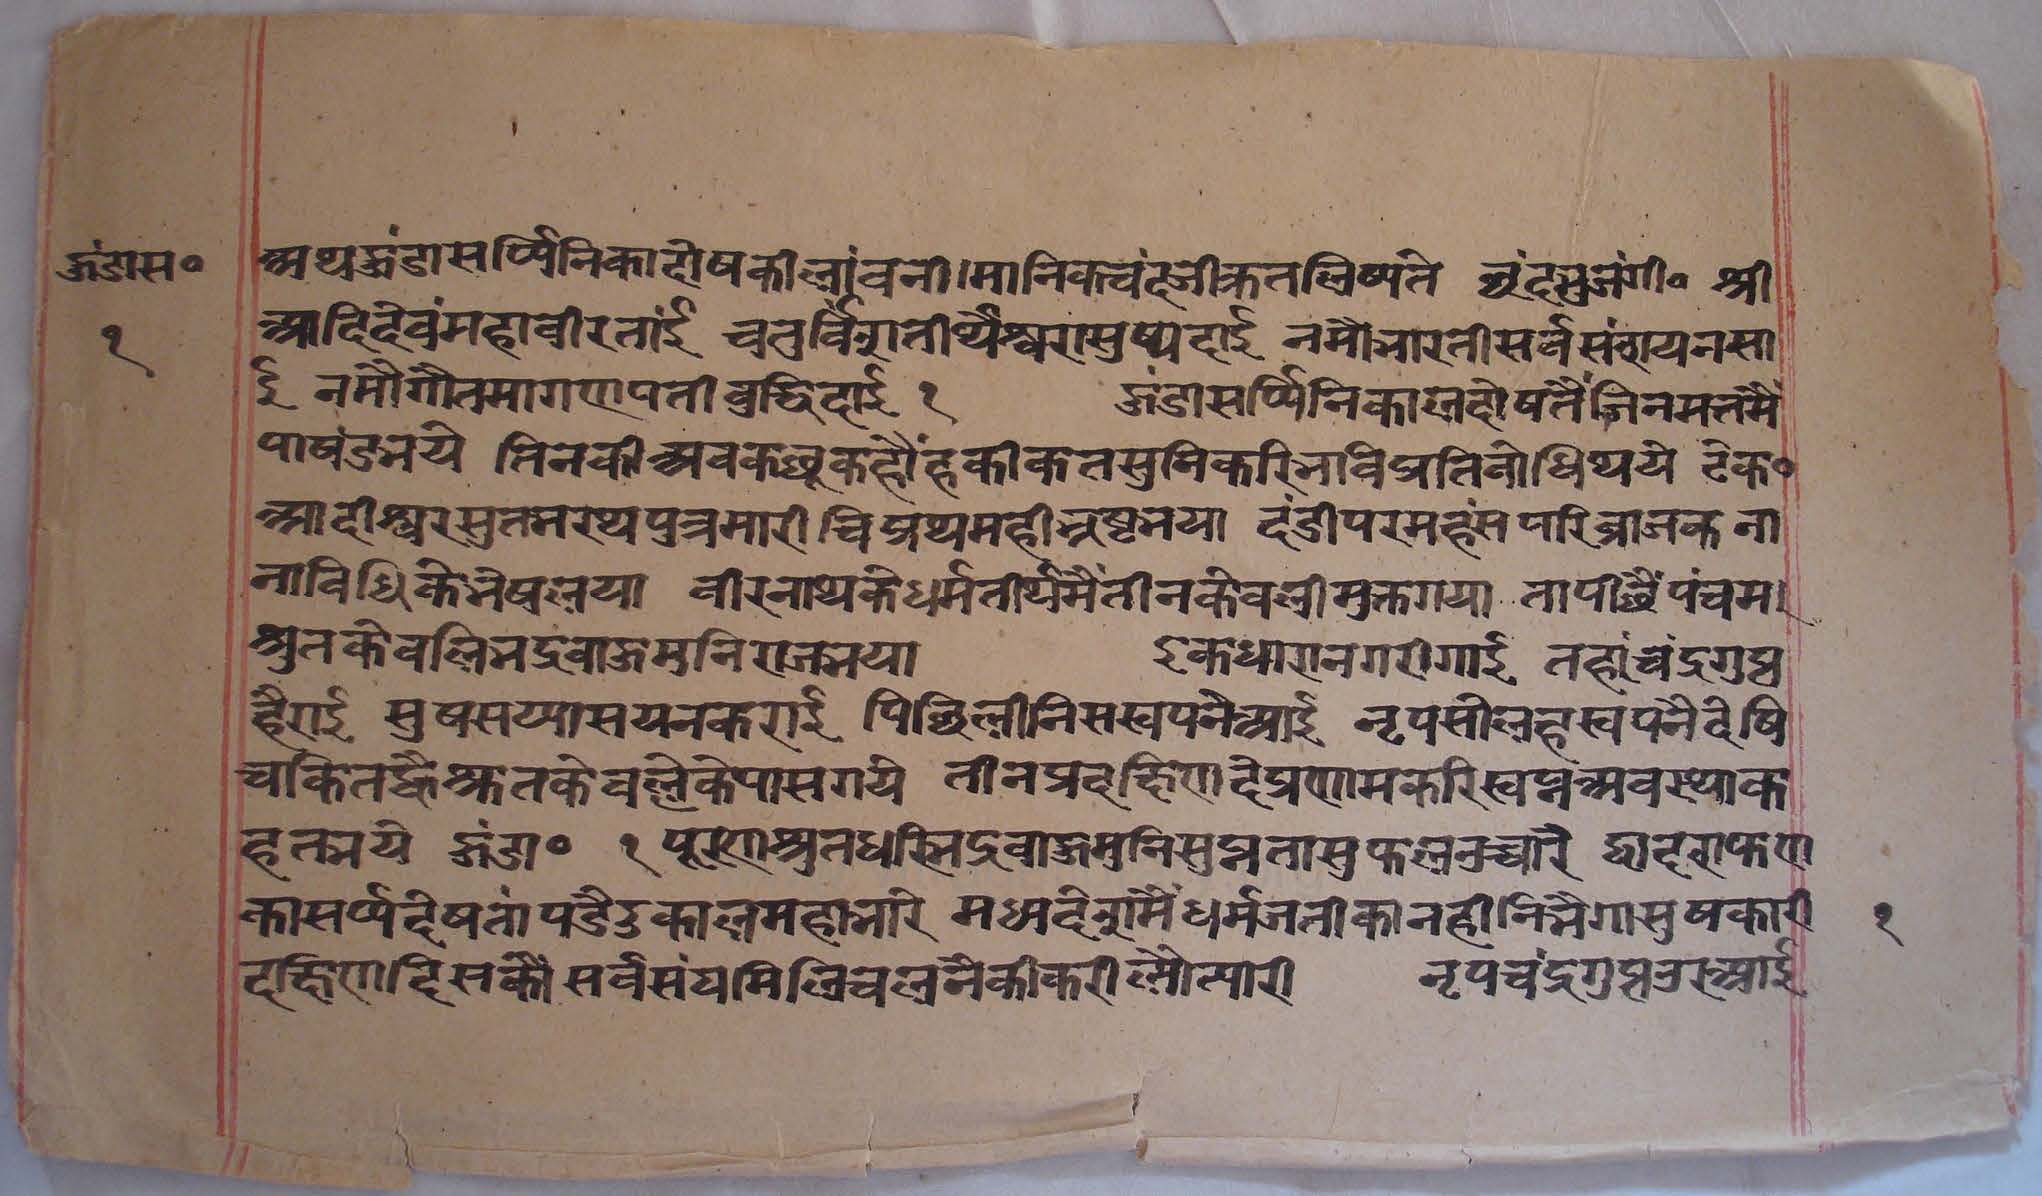 हुंडास०
१
अथ हुंडासर्प्पिनिका दोष की लांवनी। मानिकचंदजी कृत लिष्यते छंद भुजंगी० श्री
आदि देवं महावीर तांई चतुर्विंश तीर्थेश्वरा सुष्यदाई नमौ भारती सर्व संशय नसा
ई नमौ गौतमा गणपती वुद्धिदाई १ हुंडासर्प्पिनि काल दोष तैं जिनमत मैं
पाषंड भये तिन की अव कछू कहौं हकीकत सुनि करि भवि प्रतिवोधि थये टेक०
आदीश्वर सुत भरथ पुत्र मारीचि प्रथम ही भ्रष्ट भया दंडी परमहंस पारिव्राजक ना
ना विधि के भेष लया वीरनाथ के धर्म तीर्थ मैं तीन केवली मुक्त गया ता पीछैं पंचम
श्रुत केवलि भद्रवाहु मुनिराज भया इक धारा नगरी गाई तहां चंद्रगुप्त
है राई सुष सय्या सयन कराई पिछिली निस स्वपनै आई नृप सोलह स्वपनै देषि
चकित ह्वै श्रुत केवली के पास गये तीन प्रदक्षिणा दे प्रणाम करि स्वप्न अवस्था क
हत भये हुंडा० १ पूरण श्रुतधरि भद्रवाहु मुनि सुप्न तासु फल उच्चारै द्वादश फण
का सर्प्प देष तां पडै दुकाल महा भारि मध्य देश मैं धर्म जती का नही निभैगा सुषकारी
दक्षिण दिस कौं सर्व संघ मिलि चलनै की करी त्यारी नृप चंद्रगुप्त उर आई
१